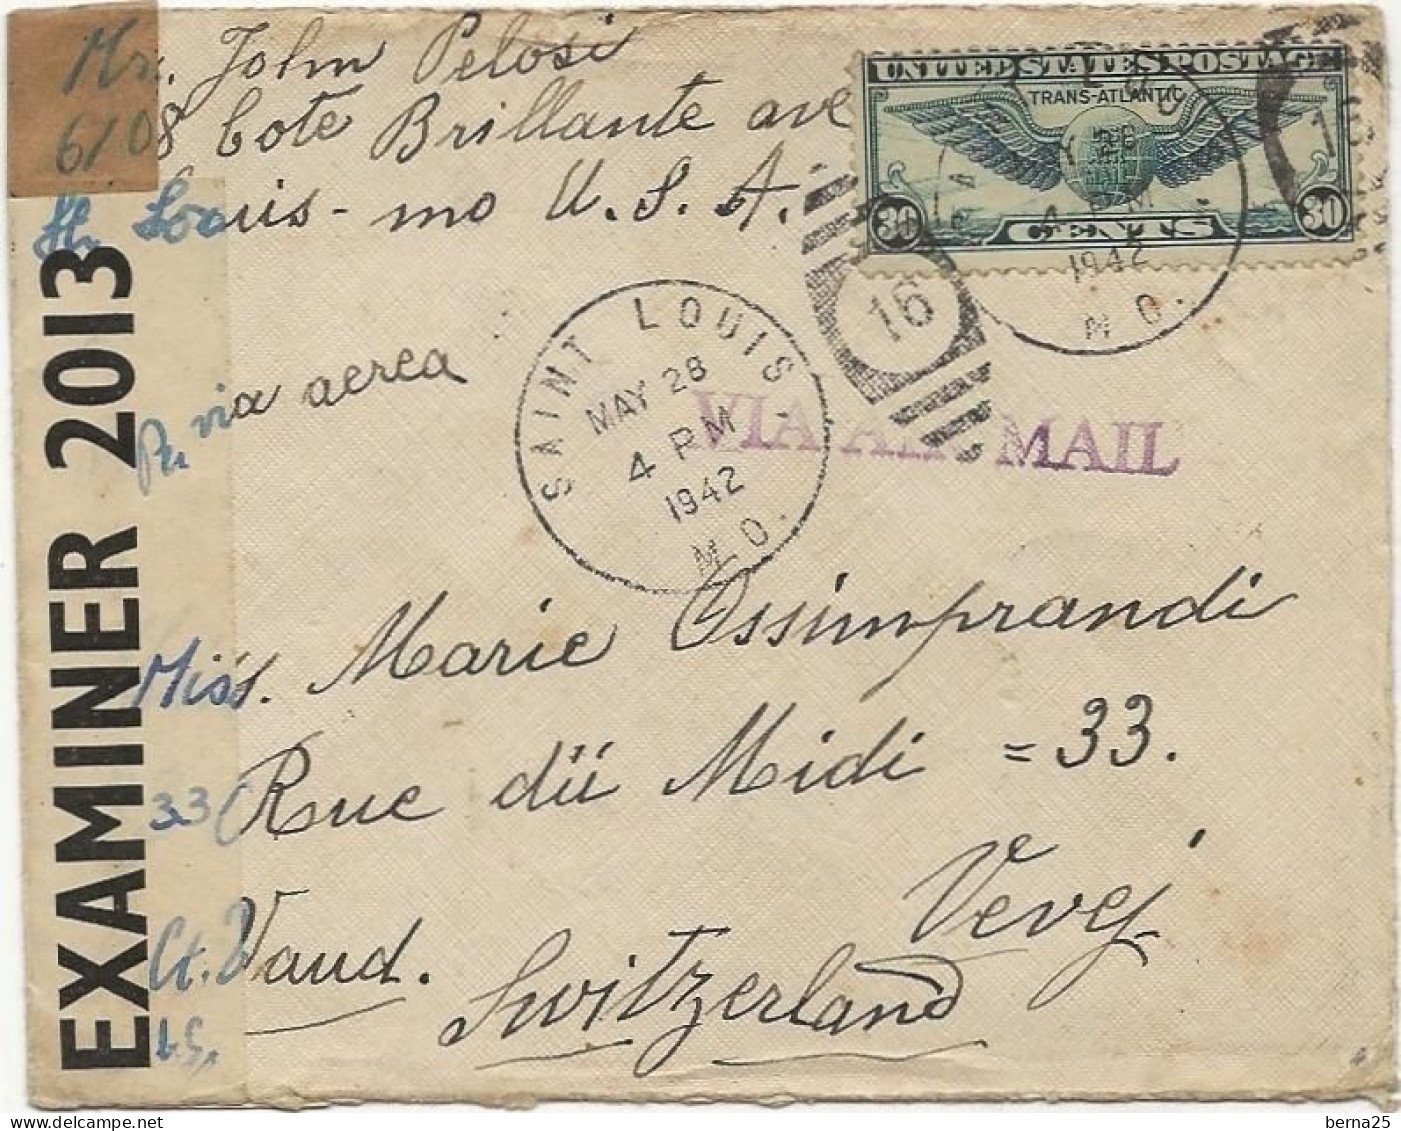 Mr. John Pelosi
6108 Cote Brillante ave
St. Louis - mo U.S.A.
UNITED STATES POSTAGE
TRANS-ATLANTIC
30 CENTS 30
4 PM
1942
MO.
16
16
EXAMINER 2013
Per via aerea
SAINT LOUIS,
MAY 28
4 PM
1942
MO.
VIA AIR MAIL
Miss. Marie Ossimprandi
33 Rue dü Midi = 33.
Vevej
Ct. Vaud.
Switzerland
berna25